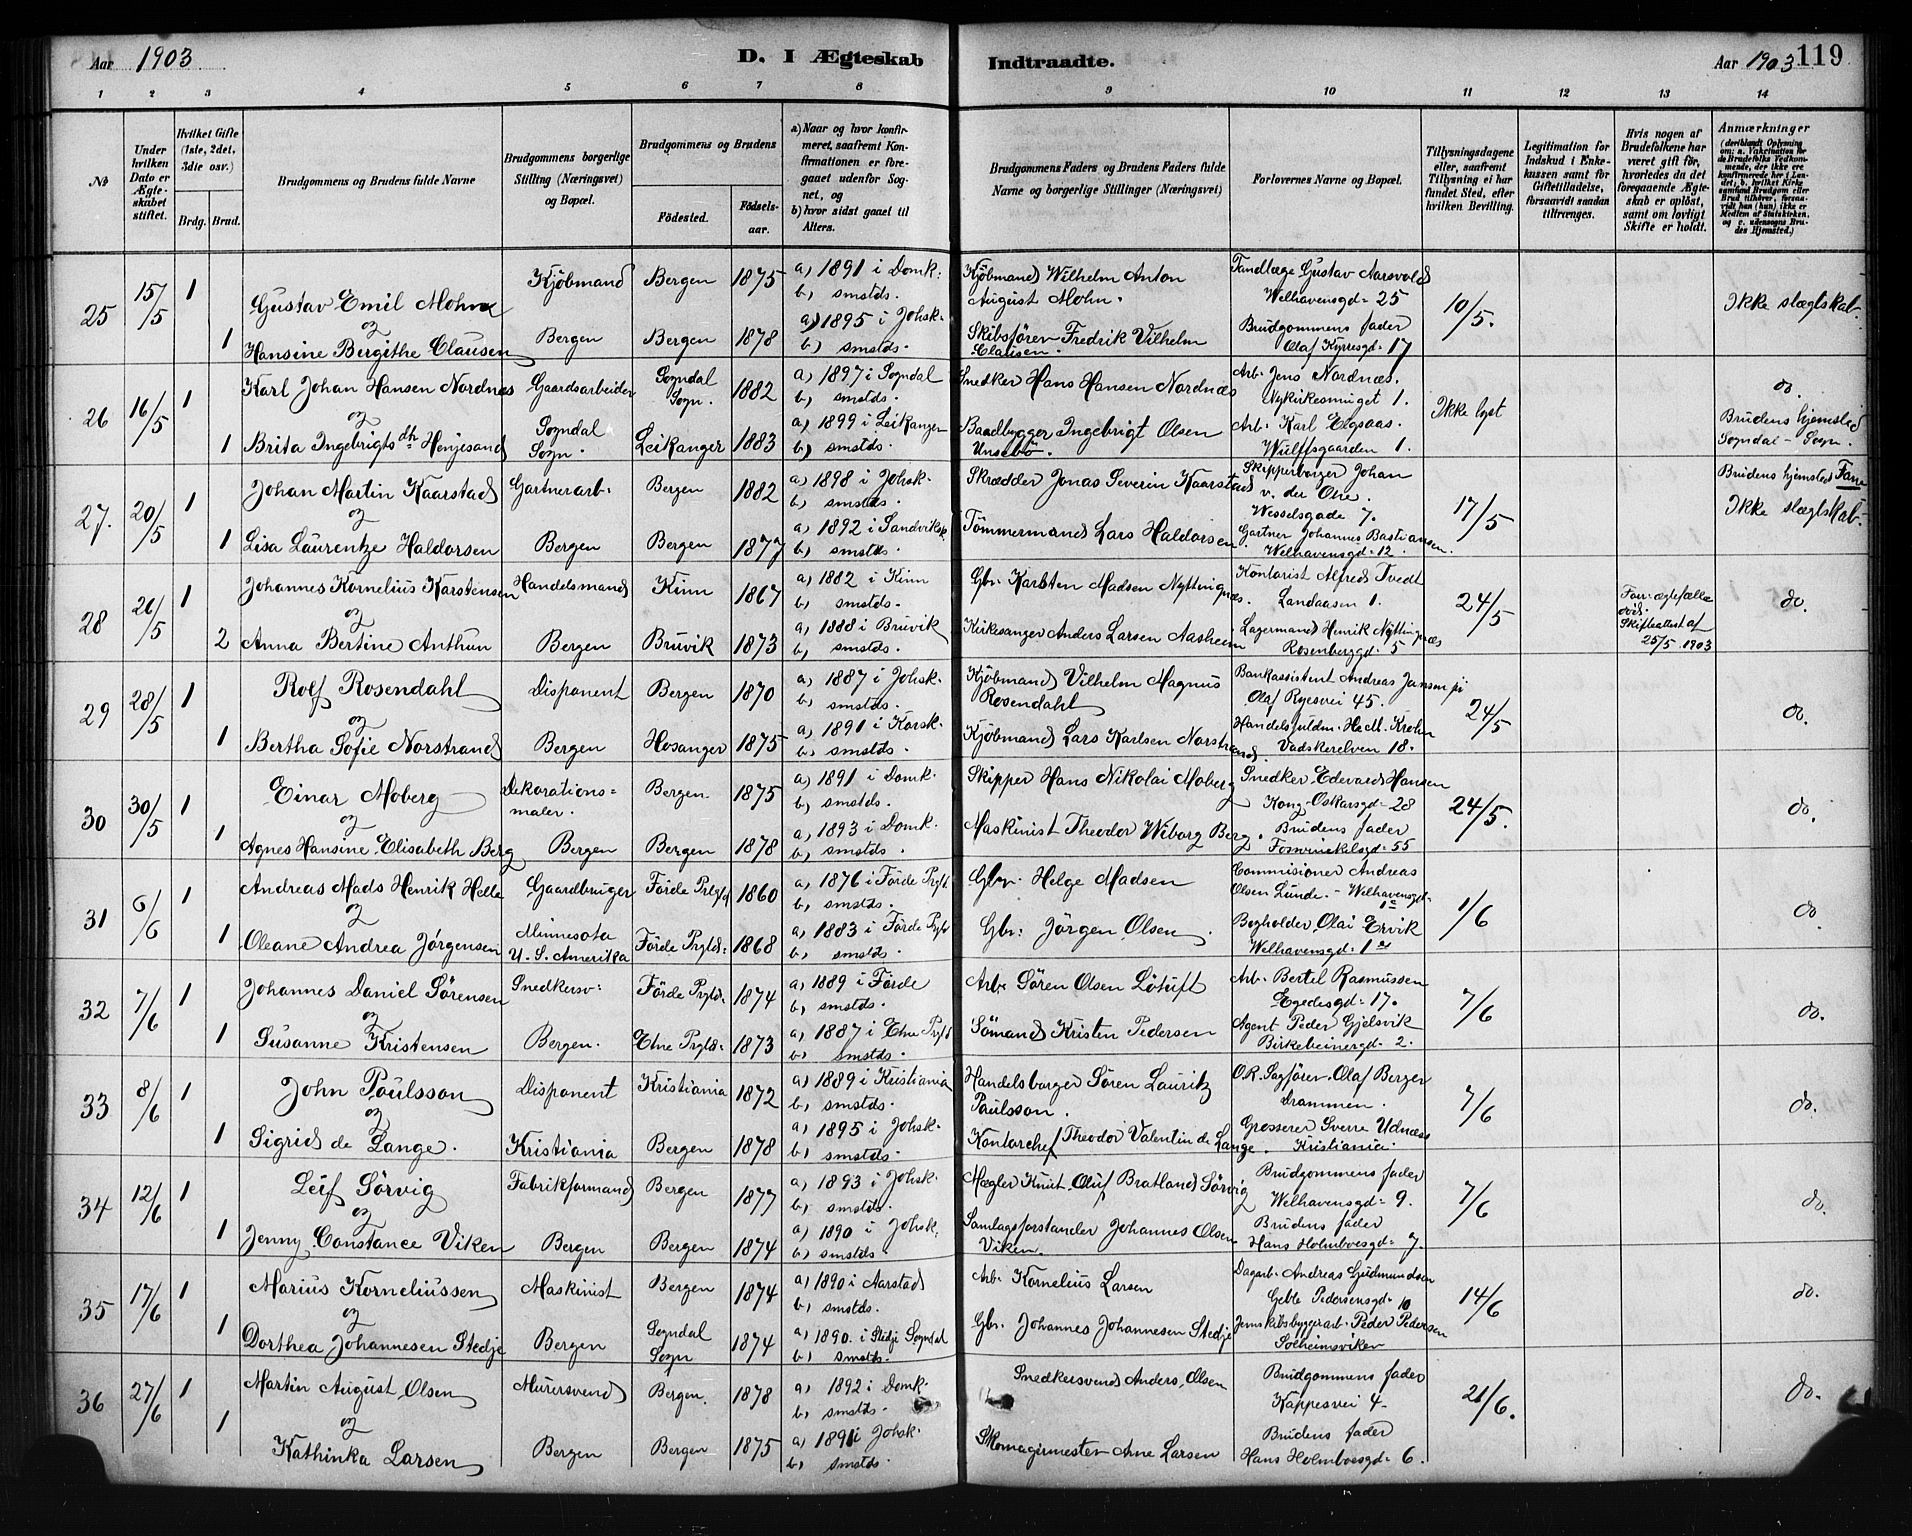 Aar 1903
D. I Ægteskab Indtraadte.
Aar 1903 119
1 2 3 4 5 6 7 8 9 10 11 12 13 14
№
Under hvilken Dato er Ægteskabet stiftet.
Hvilket Gifte (1ste, 2det, 3die osv.)
Brdg. Brud.
Brudgommens og Brudens fulde Navne
Brudgommens borgerlige Stilling (Næringsvei) og Bopæl.
Brudgommens og Brudens
Fødested. Fødselsaar.
a) Naar og hvor konfirmeret, saafremt Konfirmationen er foregaaet udenfor Sognet, og
b) hvor sidst gaaet til Alters.
Brudgommens Faders og Brudens Faders fulde Navne og borgerlige Stillinger (Næringsvei)
Forlovernes Navne og Bopæl.
Tillysningsdagene eller, saafremt Tillysning ei har fundet Sted, efter hvilken Bevilling.
Legitimation for Indskud i Enkekassen samt for Giftetilladelse, forsaavidt saadan tiltrænges.
Hvis nogen af Brudefolkene har været gift før, hvorledes da det foregaaende Ægteskab er opløst, samt om lovligt Skifte er holdt.
Anmærkninger
25 15/5 1 Gustav Emil Mohn Kjøbmand Bergen 1875 a) 1891 i Domk. b) smstds. Kjøbmand Wilhelm Anton August Mohn. Tandlæge Gustav Aarsvold Welhavensgd. 25 10/5. Ikke slægtskab.
og
1 Hansine Bergithe Clausen Bergen Bergen 1878 a) 1895 i Johsk. b) smstds. Skibsfören Fredrik Vilhelm Clausen. Brudgommens fader Olaf Kyrresgd. 17
26 16/5 1 Karl Johan Hansen Nordnes Gaardsarbeider Sogndal Sogn. 1882 a) 1897 i Sogndal b) smstds. Snedker Hans Hansen Nordnæs Arb. Jens Nordnæs. Nykirkesmuget 1. Ikke lyst do.
og
1 Brita Ingebrigtsdtr Henjesand Sogndal Sogn. Leikanger 1883 a) 1899 i Leikanger b) smstds. Baadbygger Ingebrigt Olsen Arb. Karl Elgsaas. Wulffsgaarden 1. Brudens hjemsted Sogndal - Sogn.
27. 20/5 1 Johan Martin Kaarstad Gartnerarb. Bergen 1882 a) 1898 i Johsk. b) smstds. Skrædder Jonas Severin Kaarstad Skipperborger Johan v. der Ohe. Wesselsgade 7. 17/5 Brudens hjemsted Fane Ikke slægtskab.
og
1 Lisa Laurentze Haldorsen Bergen Bergen 1877 a) 1892 i Sandviksk b) smstds. Tömmermand Lars Haldorsen Gartner Johannes Bastiansen. Welhavensgd. 12.
28 26/5 1 Johannes Kornelius Karstensen Handelsmand Kinn 1867 a) 1882 i Kinn b) smstds. Gbr. Karsten Madsen Nyttingnæs. Kontorist Alfred Tvedt Landaasen 1. 24/5 Forr. ægtefælle död. Skifteatest af 25/5 1903 do.
og
2 Anna Bertine Anthun Bergen Bruvik 1873 a) 1888 i Bruvik b) smstds. Kirkesanger Anders Larsen Aasheim Lagermand Henrik Nyttingnæs Rosenberggd. 5
29 28/5 1 Rolf Rosendahl Disponent Bergen 1870 a) 1887 i Johsk. b) smstds. Kjøbmand Vilhelm Magnus Rosendahl Bankassistent Andreas Jansen Olaf Ryesvei 45. 24/5 do.
og
1 Bertha Sofie Norstrand Bergen Hosanger 1875 a) 1891 i Korsk. b) smstds. Kjøbmand Lars Karlsen Norstrand Handelsfuldm. H. M. Krohn Vadskerelven 18.
30 30/5 1 Einar Moberg Dekorationsmaler. Bergen. 1875 a) 1891 i Domk. b) smstds. Skipper Hans Nikolai Moberg Snedker Edevard Hansen Kong Oskarsgd. 28 24/5. do.
og
1 Agnes Hansine Elisabeth Berg Bergen Bergen 1878 a) 1893 i Domk. b) smstds. Maskinist Theodor Wiborg Berg. Brudens fader Fosvinckelsgd. 55
31 6/6 1 Andreas Mads Henrik Helle Gaardbruger Förde Prgld 1860 a) 1876 i Förde Prgld b) smstds. Gbr. Helge Madsen Commisionær Andreas Olsen Lunde - Welhavensgd. 1c 1/6 do.
og
1 Oleane Andrea Jørgensen Minnesota U. S. Amerika Förde Prgld. 1868 a) 1883 i Förde Prgld b) smstds. Gbr. Jörgen Olsen. Bogholder Olai Ervik Welhavensgd. 1a
32 7/6 1 Johannes Daniel Sørensen Snedkersv. Förde Prgld. 1874 a) 1889 i Förde b) smstds. Arb. Sören Olsen Lötuft Arb. Bertel Rasmussen Egedesgd. 17. 7/6 do.
og
1 Susanne Kristensen Bergen. Etne Prgld. 1873 a) 1887 i Etne Prgld b) smstds. Sömand Kristen Pedersen Agent Peder Gjelsvik Birkebeinergd. 2.
33 8/6 1 John Paulsson Disponent Kristiania 1872 a) 1889 i Kristiania b) smstds. Handelsborger Sören Lauritz Paulsson. O.R. Sagfören. Olaf Berger Drammen. 7/6 do.
og
1 Sigrid de Lange. Kristiania Bergen 1878 a) 1895 i Johsk. b) smstds. Kontorchef Theodor Valentin de Lange. Grosserer Sverre Udnæs Kristiania.
34 12/6 1 Leif Sörvig Fabrikformand Bergen 1877 a) 1893 i Johsk. b) smstds. Mægler Knut Oluf Bratland Sörvig Brudgommens fader Welhavensgd. 9. 7/6 do.
og
1 Jenny Constance Viken Bergen Bergen 1874 a) 1890 i Johsk. b) smstds. Samlagsforstander Johannes Olsen Viken. Brudens fader Hans Holmboesgd. 7.
35 17/6 1 Marius Korneliussen Maskinist Bergen 1874 a) 1890 i Aarstad b) smstds. Arb. Kornelius Larsen Dagarb. Andreas Gudmundsen Geble Pedersensgd. 10 14/6 do.
og
1 Dorthea Johannesen Stedje Bergen Sogndal Sogn 1874 a) 1890. i Stedje Sogndal b) smstds. Gbr. Johannes Johannesen Stedje Jernskibsbyggerarb. Peder Pedersen Solheimsviken
36 27/6 1 Martin August Olsen Murersvend Bergen. 1878 a) 1892 i Domk. b) smstds. Snedkersvend Anders Olsen Brudgommens fader Kappesvei 4. 21/6. do.
og
1 Kathinka Larsen Bergen Bergen 1875 a) 1891 i Johsk. b) smstds. Skomagermester Arne Larsen Brudens fader Hans Holmboesgd. 6.